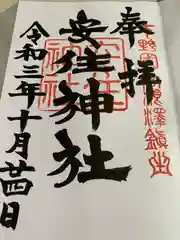 奉拝
安住神社
令和三年十月廿四日